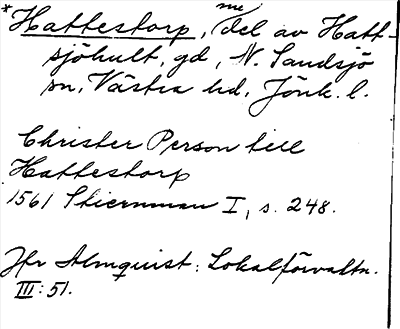 * Hattestorp, nu del av Hatt-
sjöhult, gd, N. Sandsjö
sn, Västra hd, Jönk. l.
Christer Person till
Hattestorp
1561 Stiernman I, s. 248.
Jfr Almquist: Lokalförvaltn.
III: 51.